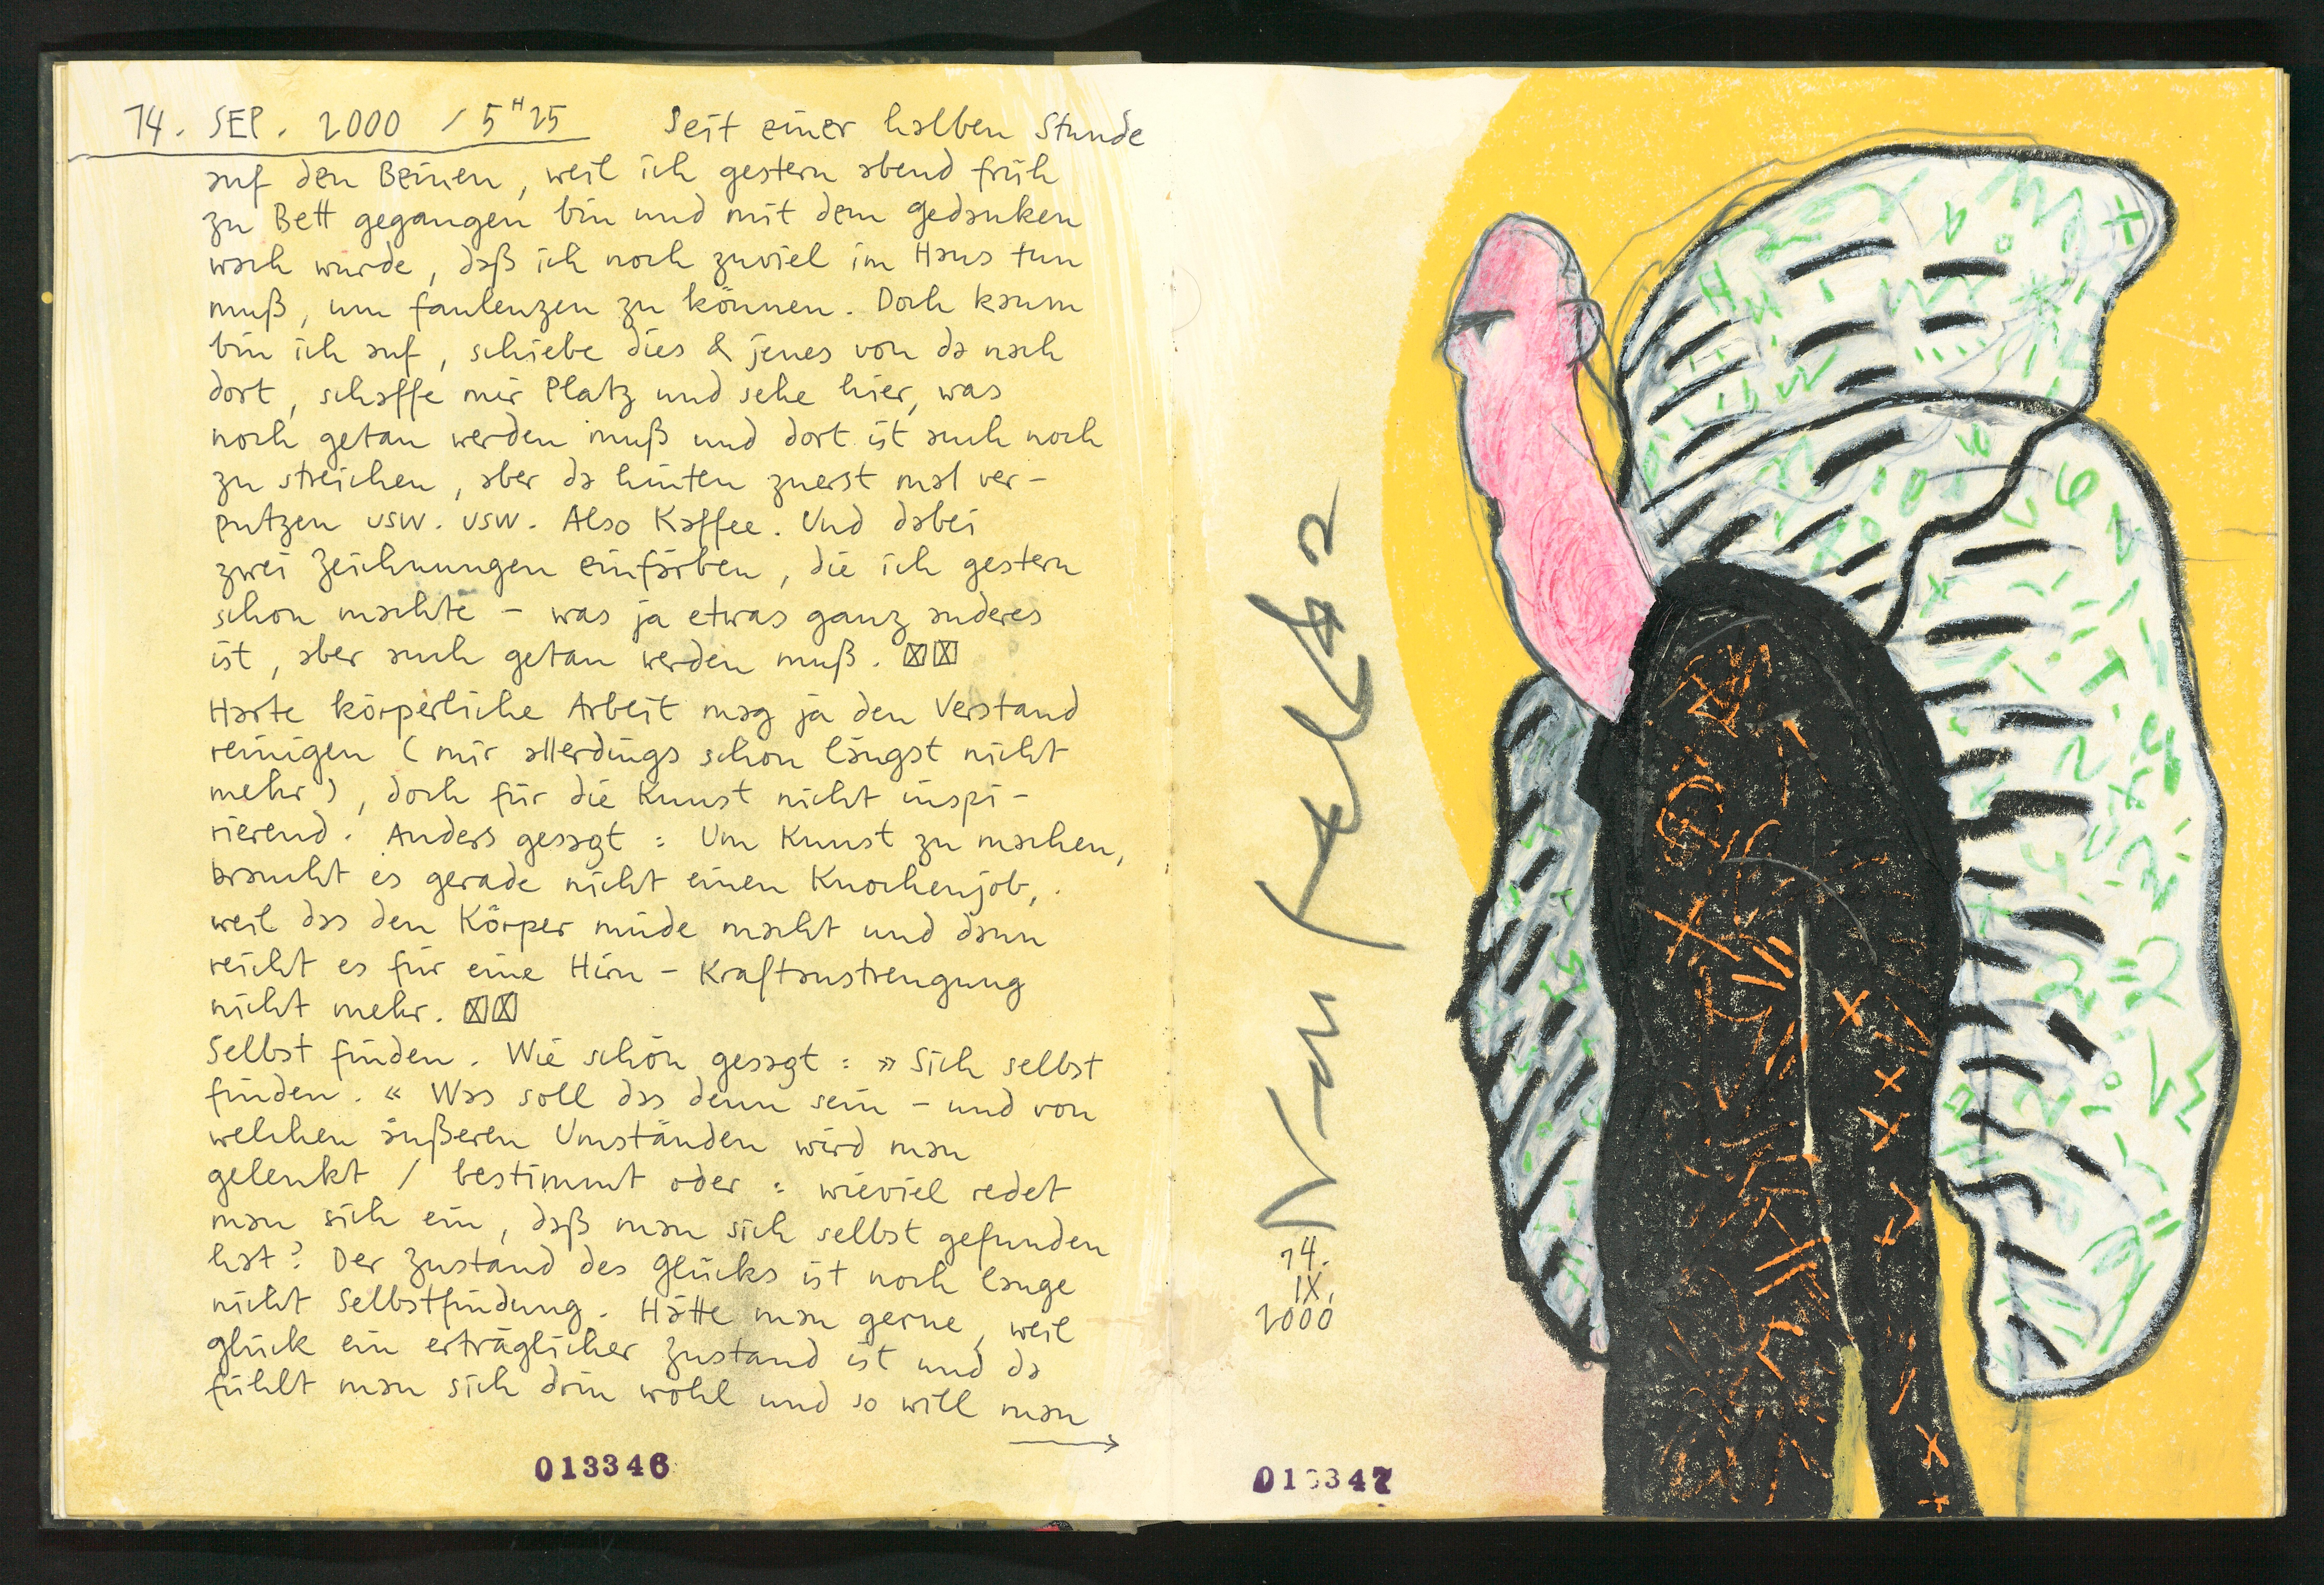 14. SEP. 2000 / 5 H 25 Seit einer halben Stunde
auf den Beinen, weil ich gestern abend früh
zu Bett gegangen bin und mit dem gedanken
wach wurde, daß ich noch zuviel im Haus tun
muß, um faulenzen zu können. Doch kaum
bin ich auf, schiebe dies & jenes von da nach
dort, schaffe mir Platz und sehe hier, was
noch getan werden muß und dort ist auch noch
zu streichen, aber da hinten zuerst mal ver-
putzen usw. usw. Also Kaffee. Und dabei
zwei Zeichnungen einfärben, die ich gestern
schon machte – was ja etwas ganz anderes
ist, aber auch getan werden muß. ☒☒
Harte körperliche Arbeit mag ja den Verstand
reinigen (mir allerdings schon längst nicht
mehr), doch für die Kunst nicht inspi-
rierend. Anders gesagt: Um Kunst zu machen,
braucht es gerade nicht einen Knochenjob,
weil das den Körper müde macht und dann
reicht es für eine Hirn-Kraftanstrengung
nicht mehr. ☒☒
Selbst finden. Wie schön gesagt: »Sich selbst
finden.« Was soll das denn sein – und von
welchen äußeren Umständen wird man
gelenkt / bestimmt oder: wieviel redet
man sich ein, daß man sich selbst gefunden
hat? Der Zustand des Glücks ist noch lange
nicht Selbstfindung. Hätte man gerne, weil
glück ein erträglicher Zustand ist und da
fühlt man sich drin wohl und so will man
→
013346
14.
IX.
2000
013347